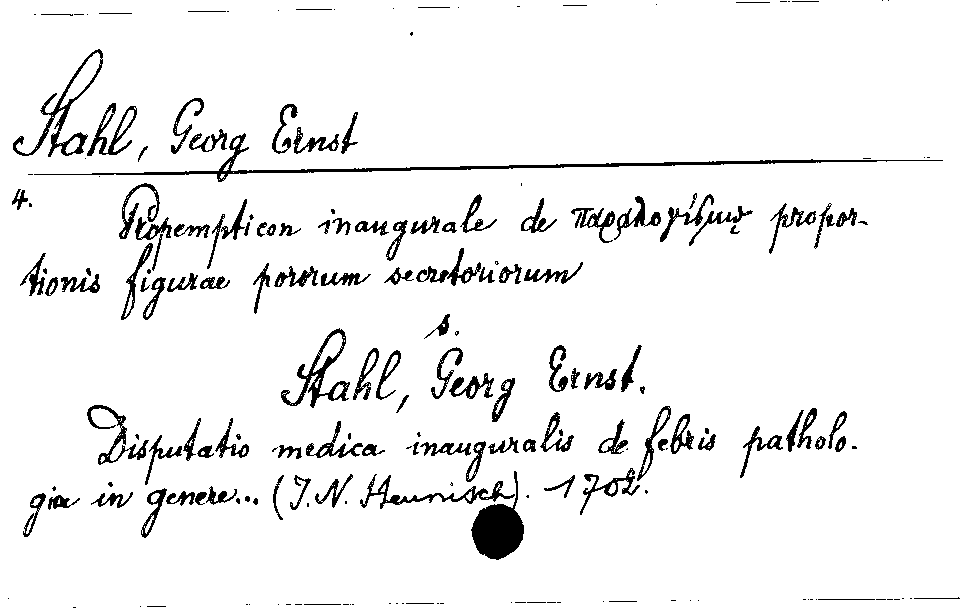 Stahl, Georg Ernst
4.
Propempticon inaugurale de propor-
tionis figurae pororum secretoriorum
s.
Stahl, Georg Ernst.
Disputatio medica inauguralis de febris patholo-
gia in genere... (J. N. Heunisch). 1702.